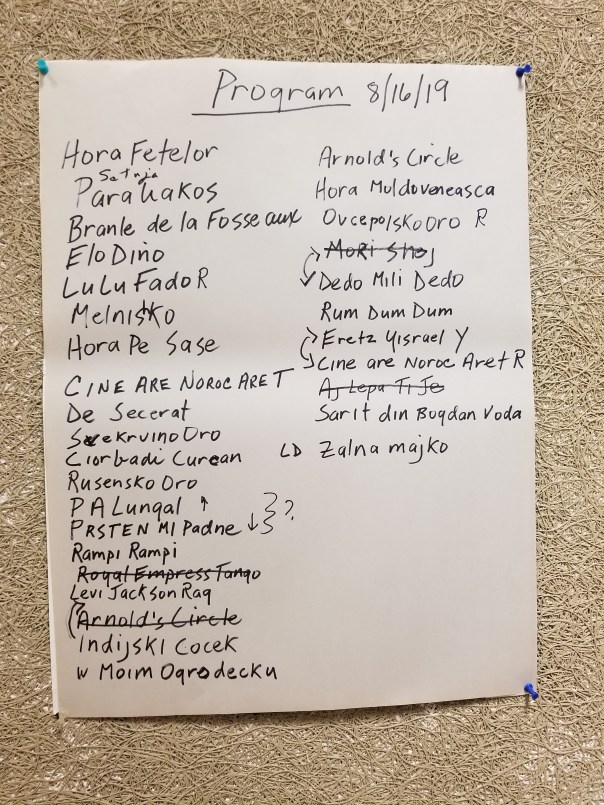 Program 8/16/19
Hora Fetelor
Setnja
Parahakos
Branle de la Fosse aux
Elo Dino
LuLu Fado R
Melnishko
Hora Pe Sase
CINE ARE NOROC ARE T
De Secerat
Svekrvino Oro
Ciorbadi Curcan
Rusensko Oro
PA Lungal ↑
PRSTEN MI Padne ↓ ?
Rampi Rampi
Royal Empress Tango
Levi Jackson Rag
Arnold's Circle
Indijski Cocek
W Moim Ogrodecku
Arnold's Circle
Hora Moldoveneasca
Ovcepolsko Oro R
Mori Shej
Dedo Mili Dedo
Rum Dum Dum
Eretz Yisrael Y
Cine are Noroc Aret R
Aj Lepa Ti Je
Sarit din Bogdan Voda
LD Zalna majko